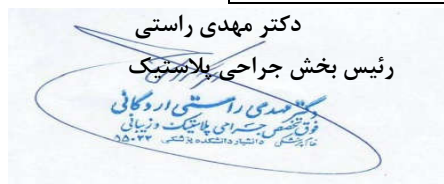 دکتر مهدی راستی
رئیس بخش جراحی پلاستیک
دکتر مهدی راستی اردکانی
فوق تخصص جراحی پلاستیک و زیبایی
دانشیار دانشکده پزشکی ۵۵۰۲۲